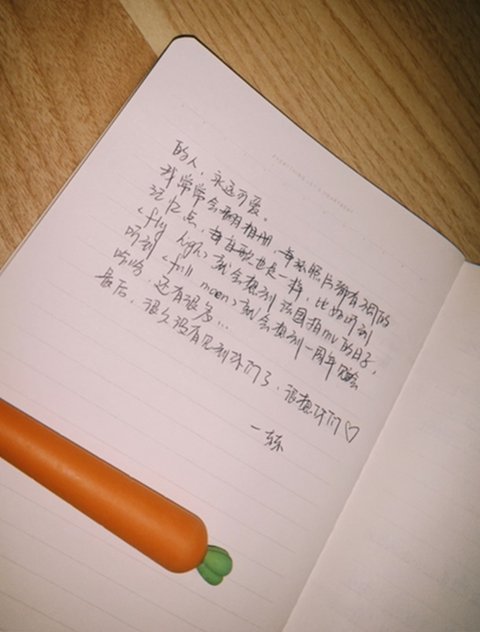 的人，永远可爱。
我常常会翻相册，每张照片都有它的
记忆点，每首歌也是一样，比如听到
<fly high>就会想到法国拍mv的日子，
听到<full moon>就会想到一周年见面会
哈哈，还有很多...
最后，很久没有见到你们了，很想你们♡